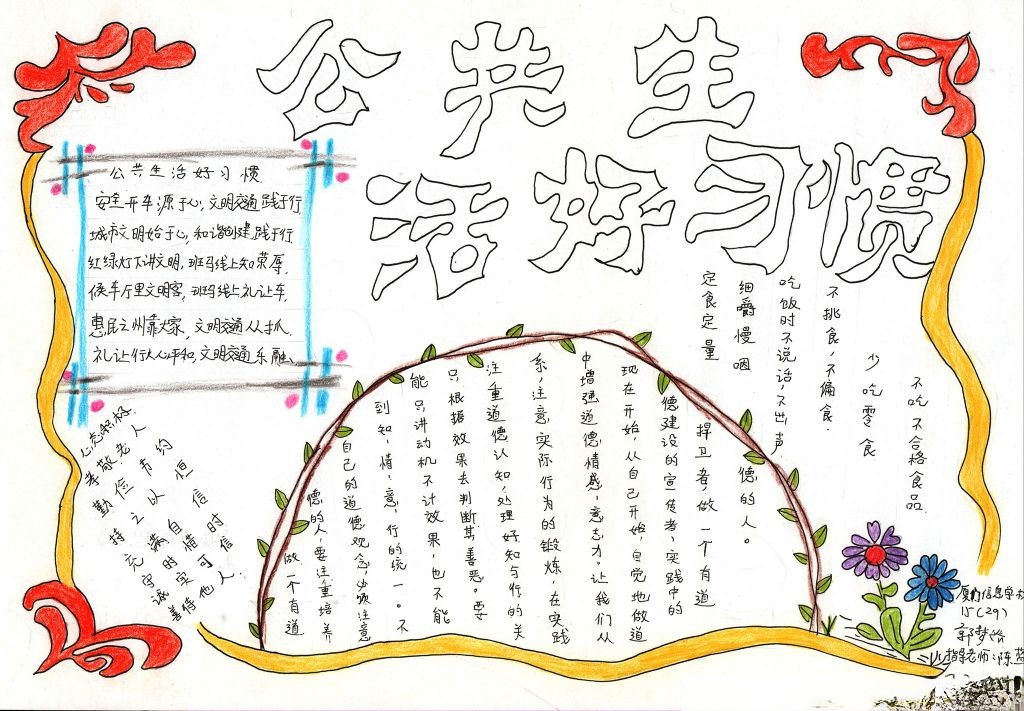 公共生
活好习惯
公共生活好习惯
安全开车源于心,文明交通践于行
城市文明始于心,和谐创建践于行
红绿灯下讲文明,斑马线上知荣辱.
候车厅里文明客,斑马线上礼让车.
惠民之州靠大家,文明交通从我抓.
礼让行人心平和,文明交通乐融融.
定食定量
细嚼慢咽
吃饭时不说话,不出声
不挑食,不偏食.
少吃零食
不吃不合格食品.
心态积极.
孝敬老人
勤俭节约
持之以恒
充满自信
守时惜时
诚实可信
善待他人.
做一个有道
德的人,要注重培养
自己的道德观念,必须注意
到知,情,意,行的统一。不
能只讲动机不计效果,也不能
只根据效果去判断其善恶。要
注重道德认知,处理好知与行的关
系,注意实际行为的锻炼,在实践
中增强道德情感,意志力。让我们从
现在开始,从自己开始,自觉地做道
德建设的宣传者,实践中的
捍卫者,做一个有道
德的人。
厦门信息学校
15(29)
郭梦
指导老师:陈